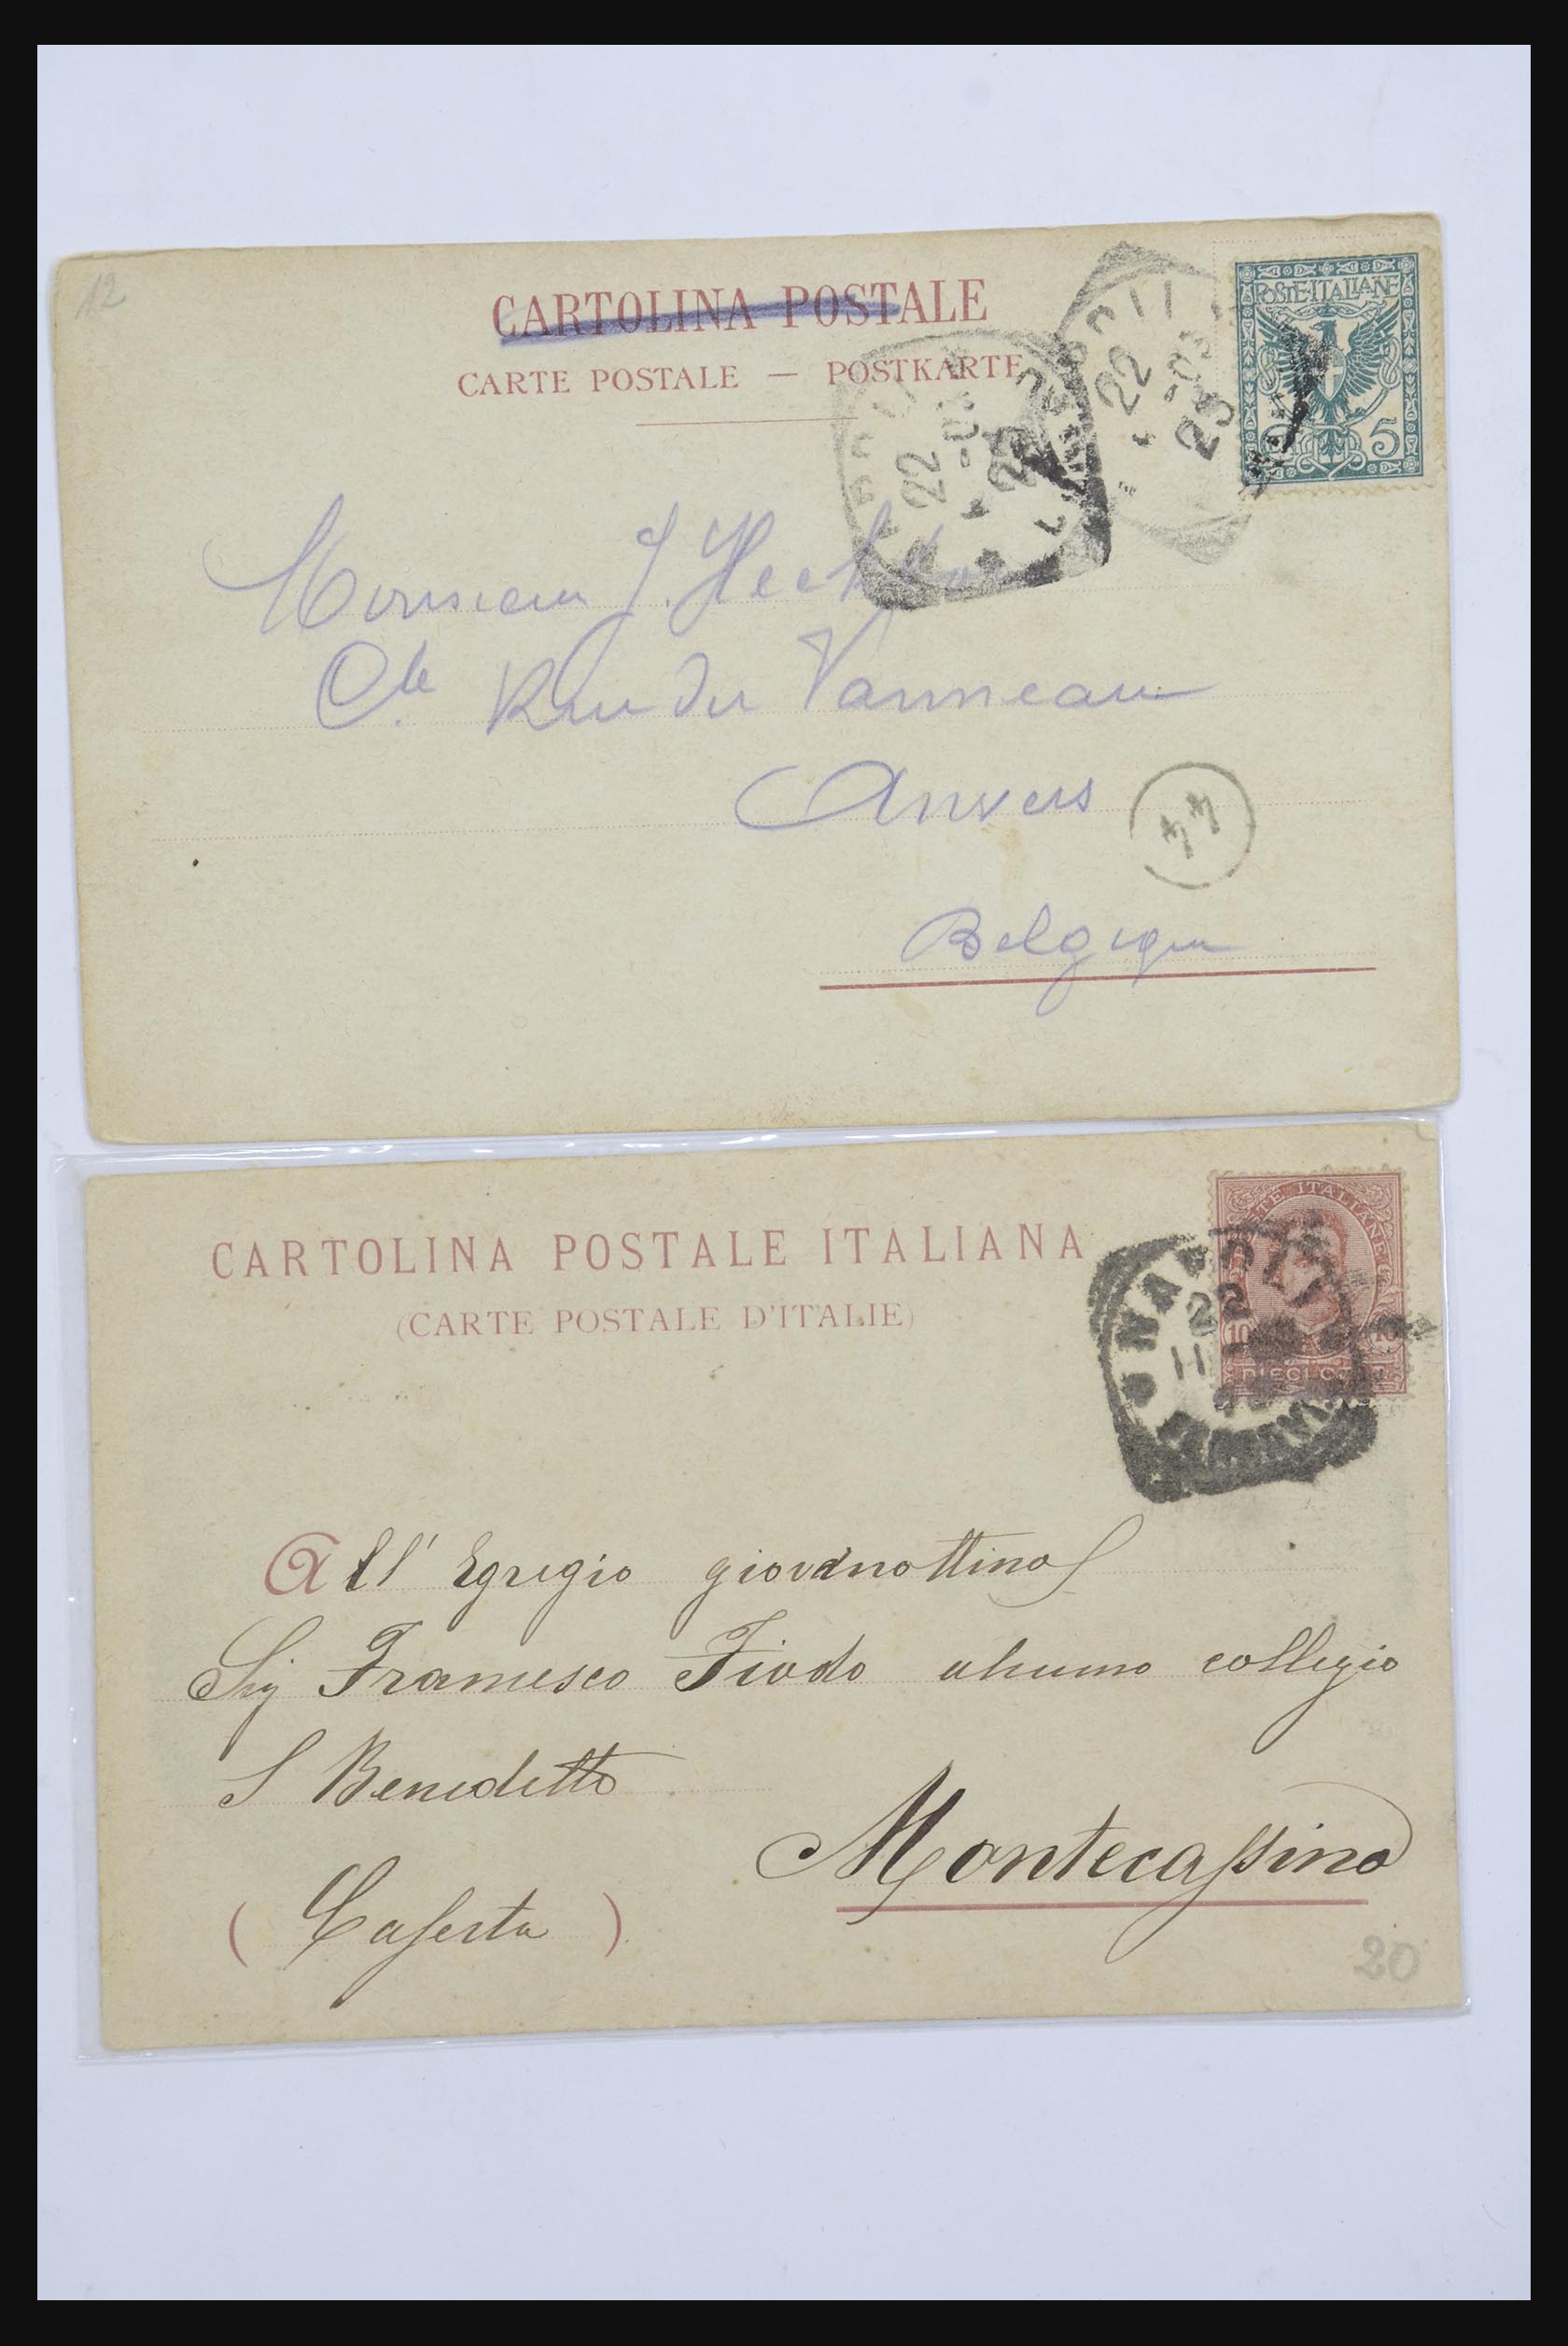 12
CARTOLINA POSTALE
CARTE POSTALE — POSTKARTE
POSTE·ITALIANE
5
22
22
Monsieur J.
Rue du Vanneau
Anvers
44
Belgique
CARTOLINA POSTALE ITALIANA
(CARTE POSTALE D'ITALIE)
POSTE ITALIANE
10 10
NAPOLI
11
All' Egregio giovanottino
Sig Francesco Fiodo alunno collegio
S Benedetto
Montecassino
( Caserta )
20